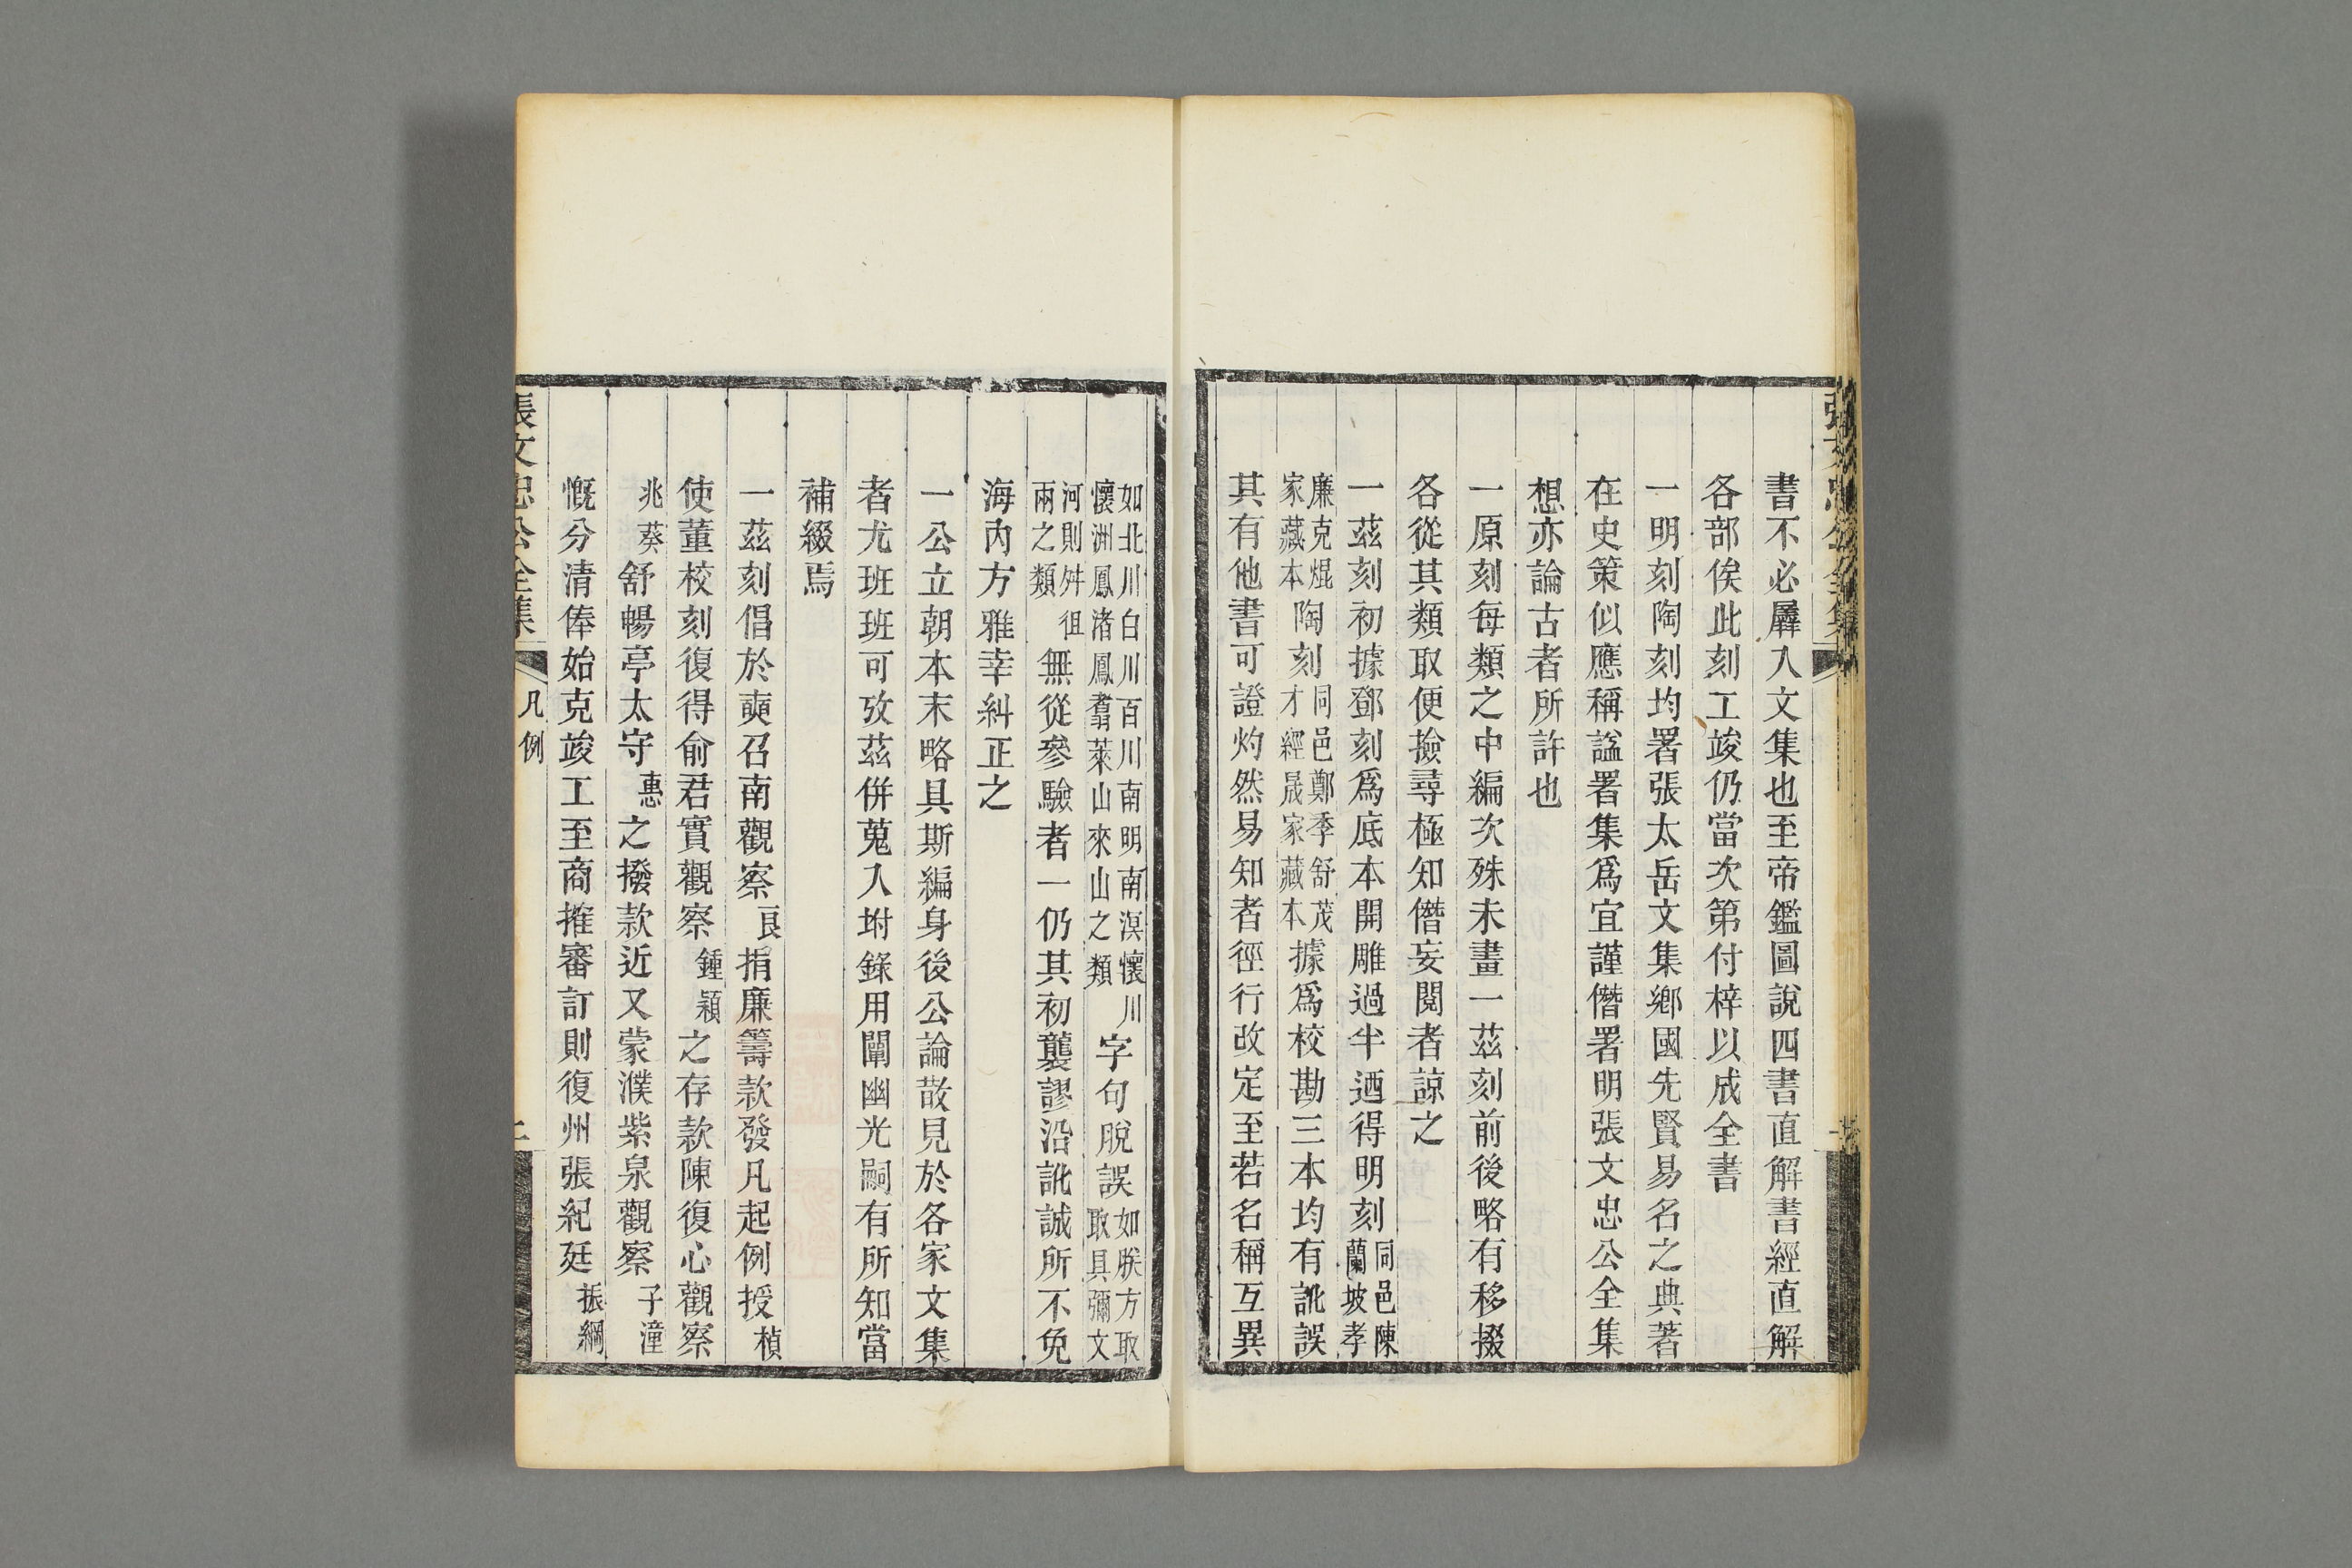 書不必羼入文集也至帝鑑圖說四書直解書經直解
各部俟此刻工竣仍當次第付梓以成全書
一明刻陶刻均署張太岳文集鄉國先賢易名之典著
在史策似應稱謚署集爲宜謹僭署明張文忠公全集
想亦論古者所許也
一原刻每類之中編次殊未畫一茲刻前後略有移掇
各從其類取便撿尋極知僭妄閱者諒之
一茲刻初據鄧刻爲底本開雕過半迺得明刻同邑陳蘭坡孝
廉克焜家藏本陶刻同邑鄭季舒茂才經晟家藏本據爲校勘三本均有訛誤
其有他書可證灼然易知者徑行改定至若名稱互異
如北川白川百川南明南溟懷川懷洲鳳渚鳳翥萊山來山之類字句脫誤如朕方取取具彌文
河則舛徂兩之類無從參驗者一仍其初襲謬沿訛誠所不免
海內方雅幸糾正之
一公立朝本末略具斯編身後公論散見於各家文集
者尤班班可攷茲併蒐入坿錄用闡幽光嗣有所知當
補綴焉
一茲刻倡於奭召南觀察良捐廉籌款發凡起例授楨
使董校刻復得俞君實觀察鍾穎之存款陳復心觀察
兆葵舒暢亭太守惠之撥款近又蒙濮紫泉觀察子潼
慨分清俸始克竣工至商搉審訂則復州張紀廷振綱
張文忠公全集
凡例